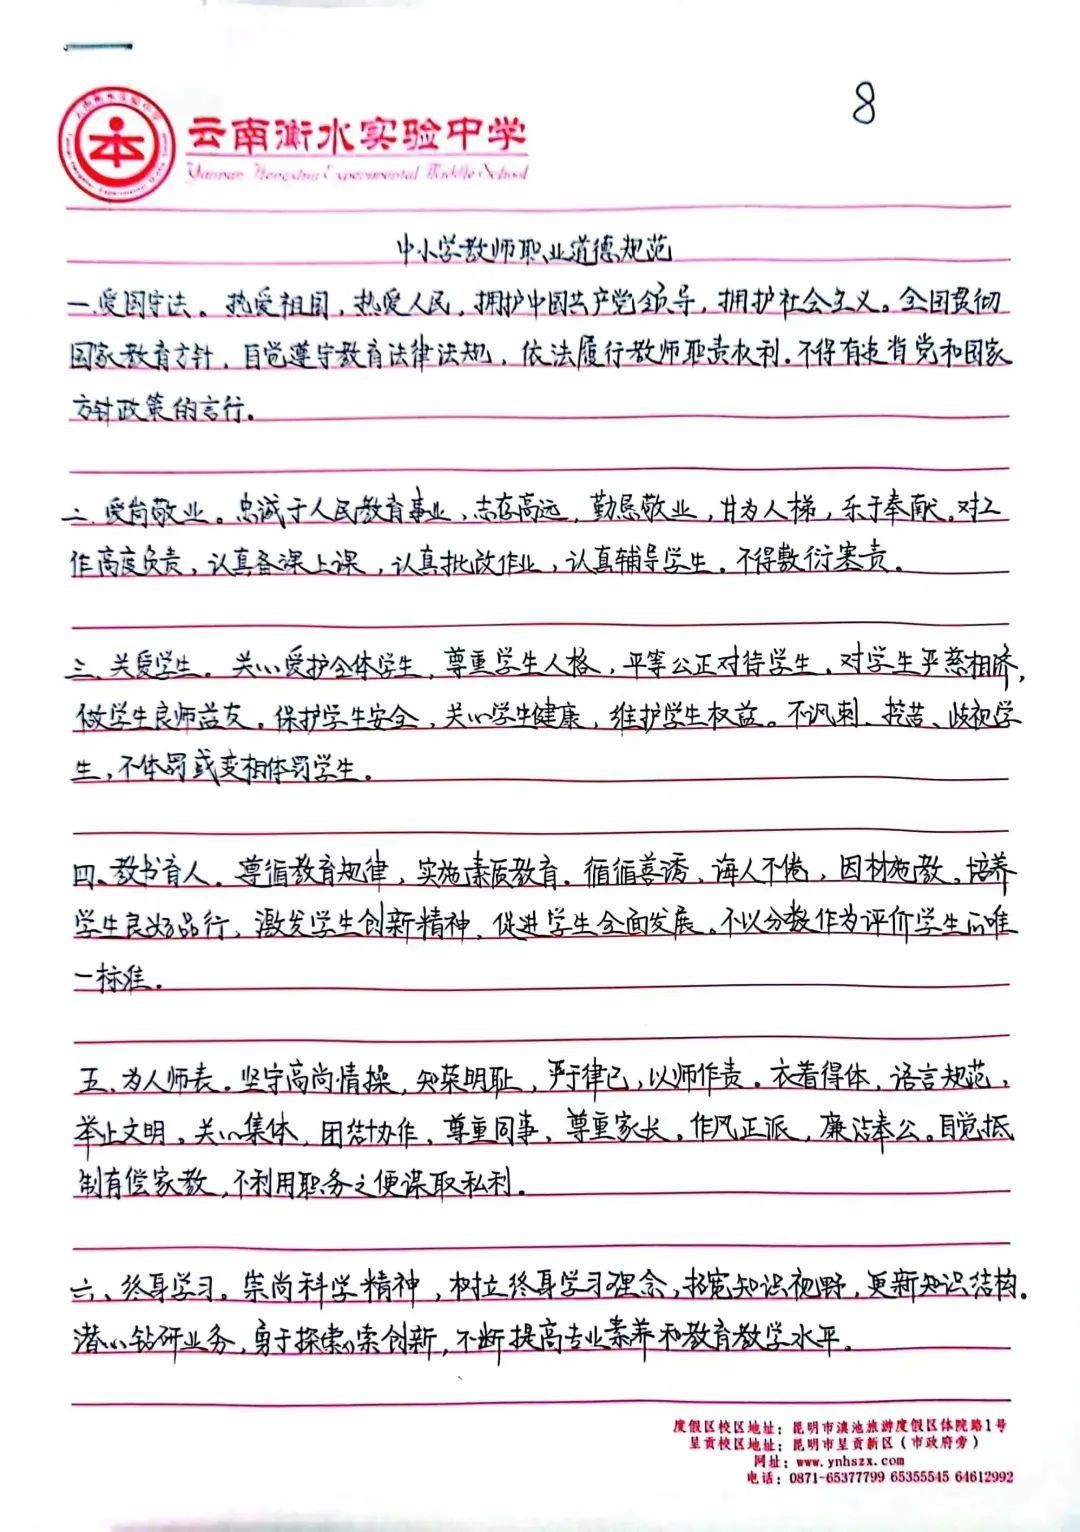 8
云南衡水实验中学
Yunnan Hengshui Experimental Middle School
中小学教师职业道德规范
一.爱国守法。热爱祖国,热爱人民,拥护中国共产党领导,拥护社会主义。全国贯彻
国家教育方针,自觉遵守教育法律法规,依法履行教师职责权利.不得有违背党和国家
方针政策的言行。
二.爱岗敬业。忠诚于人民教育事业,志存高远,勤恳敬业,甘为人梯,乐于奉献.对工
作高度负责,认真备课上课,认真批改作业,认真辅导学生.不得敷衍塞责。
三.关爱学生。关心爱护全体学生,尊重学生人格,平等公正对待学生.对学生严慈相济,
做学生良师益友.保护学生安全,关心学生健康,维护学生权益。不讽刺、挖苦、歧视学
生,不体罚或变相体罚学生。
四、教书育人.遵循教育规律,实施素质教育.循循善诱、诲人不倦,因材施教.培养
学生良好品行,激发学生创新精神,促进学生全面发展.不以分数作为评价学生的唯
一标准.
五、为人师表.坚守高尚情操,知荣明耻,严于律己,以师作责.衣着得体,语言规范,
举止文明.关心集体,团结协作、尊重同事、尊重家长.作风正派,廉洁奉公.自觉抵
制有偿家教,不利用职务之便谋取私利.
六、终身学习.崇尚科学精神,树立终身学习理念,拓宽知识视野,更新知识结构.
潜心钻研业务,勇于探索创新,不断提高专业素养和教育教学水平.
度假区校区地址:昆明市滇池旅游度假区体院路1号
呈贡校区地址:昆明市呈贡新区(市政府旁)
网址:www.ynhszx.com
电话:0871-65377799 65355545 64612992